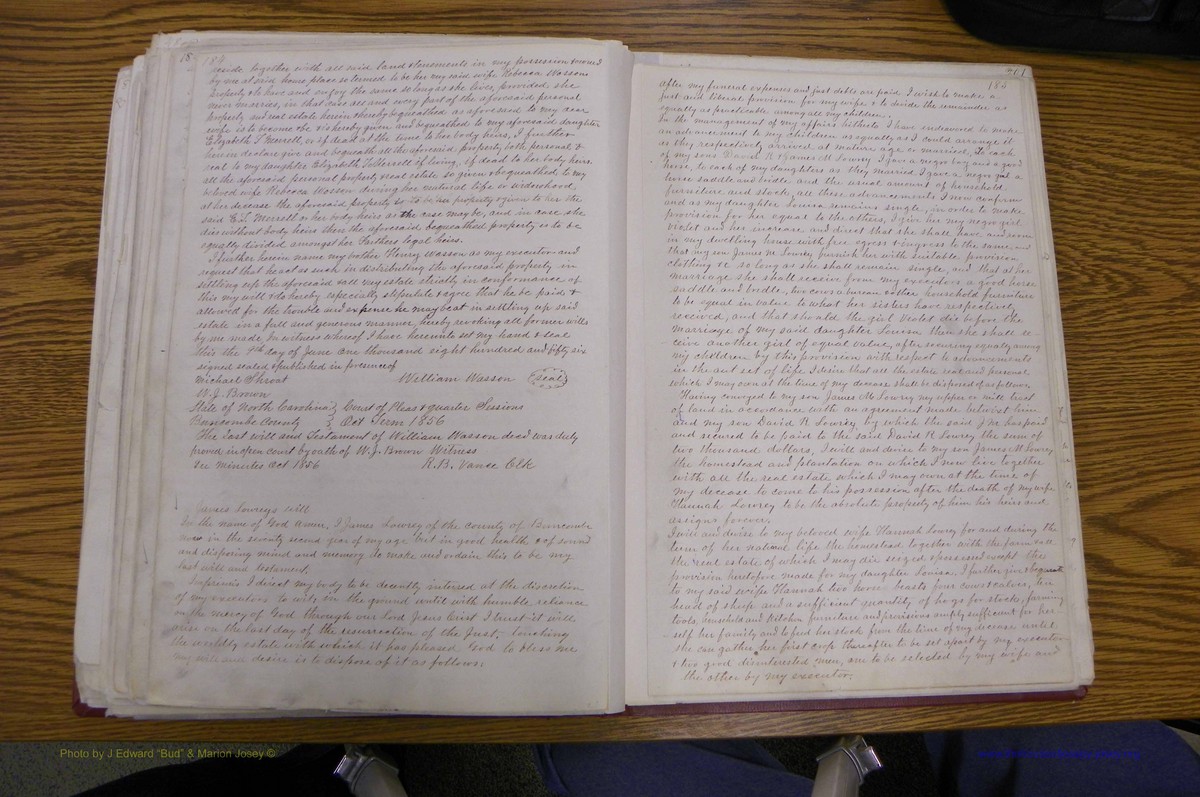 18 184
reside together with all said land & tenements in my possession & owned
by me at said home place so termed to be her my said wife Rebecca Wasson
property & to have and enjoy the same so long as she lives, provided she
never marries, in that case all and every part of the aforesaid personal
property and real estate herein thereby bequeathed as aforesaid to my dear
wife is to become the & is hereby given and bequeathed to my aforesaid daughter
Elizabeth T Merrell, or if dead at the time to her body heirs, I further
herein declare give and bequeath all the aforesaid property both personal &
real to my daughter Elizabeth T Merrell if living, if dead to her body heirs.
all the aforesaid personal property & real estate so given & bequeathed to my
beloved wife Rebecca Wasson during her natural life or widowhood
at her decease the aforesaid property so to be an property & given to her the
said E. T. Merrell or her body heirs as the case may be, and in case she
die without body heirs then the aforesaid bequeathed property is to be
equally divided amongst her Fathers legal heirs.
I further herein name my brother Henry Wasson as my executor and
request that he act as such in distributing the aforesaid property in
settling up the aforesaid will very estate strictly in conformance of
this my will & do hereby especially stipulate & agree that he be paid &
allowed for the trouble and expense he may be at in settling up said
estate in a full and generous manner, hereby revoking all former wills
by me made In witness whereof I have hereunto set my hand & seal
this the 4th day of June one thousand eight hundred and fifty six
signed sealed & published in presence of
Michael Shroat William Wasson (seal)
W. J. Brown
State of North Carolina } Court of Pleas & quarter Sessions
Buncombe County } Oct Term 1856
The Last will and Testament of William Wasson decd was duly
proved in open court by oath of W. J. Brown Witness
See minutes Oct 1856 R. B. Vance Clk
James Lowreys will
In the name of God amen. I James Lowrey of the county of Buncombe
now in the seventy second year of my age but in good health, & of sound
and disposing mind and memory do make and ordain this to be my
last will and testament.
Imprimis I direct my body to be decently interred at the discretion
of my executors to wit; in the ground until with humble reliance
on the mercy of God through our lord Jesus Christ I trust it will
arise on the last day of the resurrection of the Just, touching
the worldly estate with which it has pleased God to bless me
my will and desire is to dispose of it as follows:
201
185
After my funeral expenses and just debts are paid I wish to make a
just and liberal provision for my wife & to divide the remainder as
equally as practicable among all my children.
In the management of my affairs hitherto I have endeavored to make
an advancement to my children as equally as I could arrange it
as they respectively arrived at mature age or married, to each
of my sons David R & James M Lowry I gave a negro boy and a good
horse, to each of my daughters as they married I gave a negro girl a
horse saddle and bridle, and the usual amount of household
furniture and stock, all these advancements I now confirm
and as my daughter Louisa remains single, in order to make
provision for her equal to the others, I give her my negro girl
Violet and her increase and direct that she shall have and room
in my dwelling house with free egress & ingress to the same, and
that my son James M Lowrey furnish her with suitable provision
clothing &c so long as she shall remain single, and that at her
marriage she shall receive from my executors a good horse
saddle and bridle, two cows a bureau & other household furniture
to be equal in value to what her sisters have respectively
received, and that should the girl Violet die before the
marriage of my said daughter Louisa then she shall re-
ceive another girl of equal value, after securing equality among
my children by this provision with respect to advancements
in the out set of life I desire that all the estate real and personal
which I may own at the time of my decease shall be disposed of as follows.
Having conveyed to my son James M Lowry my upper or mill tract
of land in accordance with an agreement made betwixt him
and my son David R. Lowrey by which the said J M has paid
and secured to be paid to the said David R Lowrey the sum of
two thousand dollars, I will and devise to my son James M Lowry
the homestead and plantation on which I now live together
with all the real estate which I may own at the time of
my decease to come to his possession after the death of my wife
Hannah Lowrey to be the absolute property of him his heirs and
assigns forever.
I will and devise to my beloved wife Hannah Lowry for and during the
term of her natural life the homestead together with the farm & all
the real estate of which I may die seized & possessed except the
provision heretofore made for my daughter Louisa, I further give & bequeath
to my said wife Hannah two horse beasts four cows & calves, ten
head of sheep and a sufficient quantity of hogs for stocks, farming
tools, household and kitchen furniture and provisions amply sufficient for her-
self her family and to feed her stock from the time of my decease until
she can gather her first crop thereafter to be set apart by my executor
& two good disinterested men, one to be selected by my wife and
the other by my executor.
Photo by J Edward "Bud" & Marion Josey ©